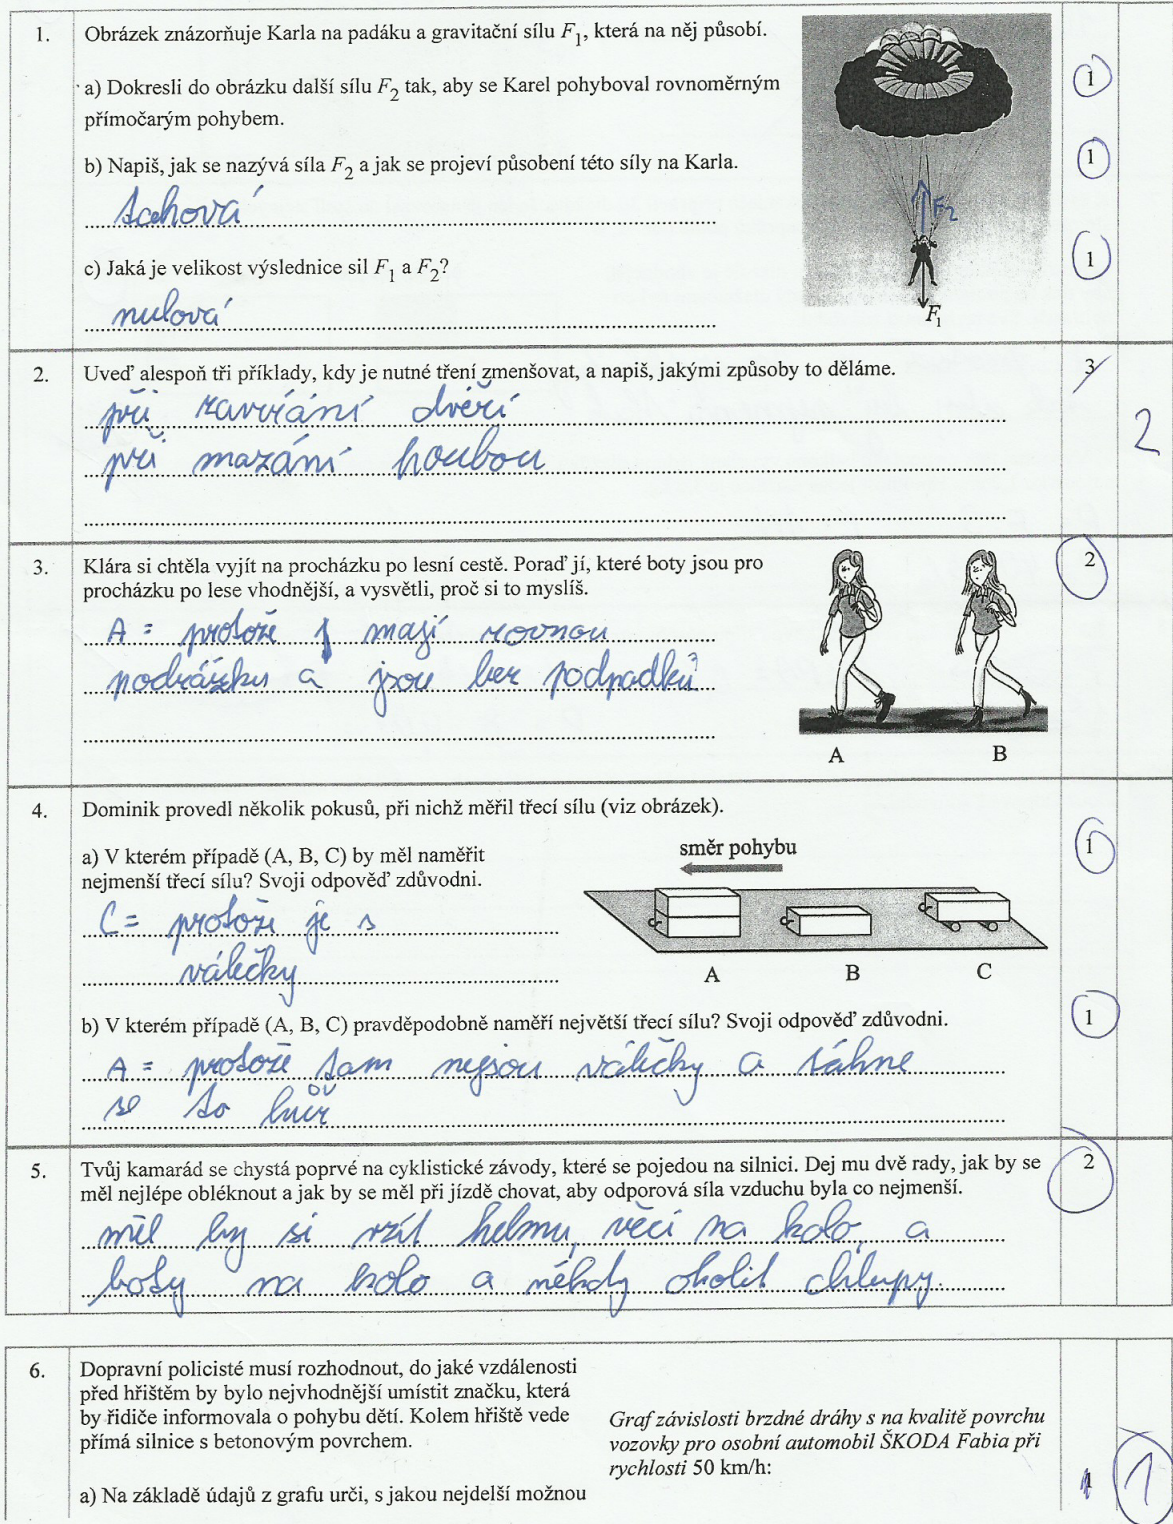 1. Obrázek znázorňuje Karla na padáku a gravitační sílu F1, která na něj působí.
a) Dokresli do obrázku další sílu F2 tak, aby se Karel pohyboval rovnoměrným
přímočarým pohybem.
1
b) Napiš, jak se nazývá síla F2 a jak se projeví působení této síly na Karla.
1
tahová
F2
c) Jaká je velikost výslednice sil F1 a F2?
1
nulová
F1
2. Uveď alespoň tři příklady, kdy je nutné tření zmenšovat, a napiš, jakými způsoby to děláme.
3
při zavírání dvěří
2
při mazání houbou
3. Klára si chtěla vyjít na procházku po lesní cestě. Poraď jí, které boty jsou pro
procházku po lese vhodnější, a vysvětli, proč si to myslíš.
2
A = protože mají rovnou
podrážku a jsou bez podpadků
A B
4. Dominik provedl několik pokusů, při nichž měřil třecí sílu (viz obrázek).
a) V kterém případě (A, B, C) by měl naměřit
nejmenší třecí sílu? Svoji odpověď zdůvodni.
1
směr pohybu
C = protože je s
válečky
A B C
b) V kterém případě (A, B, C) pravděpodobně naměří největší třecí sílu? Svoji odpověď zdůvodni.
1
A = protože tam nejsou válečky a táhne
se to
5. Tvůj kamarád se chystá poprvé na cyklistické závody, které se pojedou na silnici. Dej mu dvě rady, jak by se
měl nejlépe obléknout a jak by se měl při jízdě chovat, aby odporová síla vzduchu byla co nejmenší.
2
měl by si vzít helmu, věci na kolo, a
boty na kolo a někdy oholit chlupy.
6. Dopravní policisté musí rozhodnout, do jaké vzdálenosti
před hřištěm by bylo nejvhodnější umístit značku, která
by řidiče informovala o pohybu dětí. Kolem hřiště vede
přímá silnice s betonovým povrchem.
Graf závislosti brzdné dráhy s na kvalitě povrchu
vozovky pro osobní automobil ŠKODA Fabia při
rychlosti 50 km/h:
a) Na základě údajů z grafu urči, s jakou nejdelší možnou
1
1